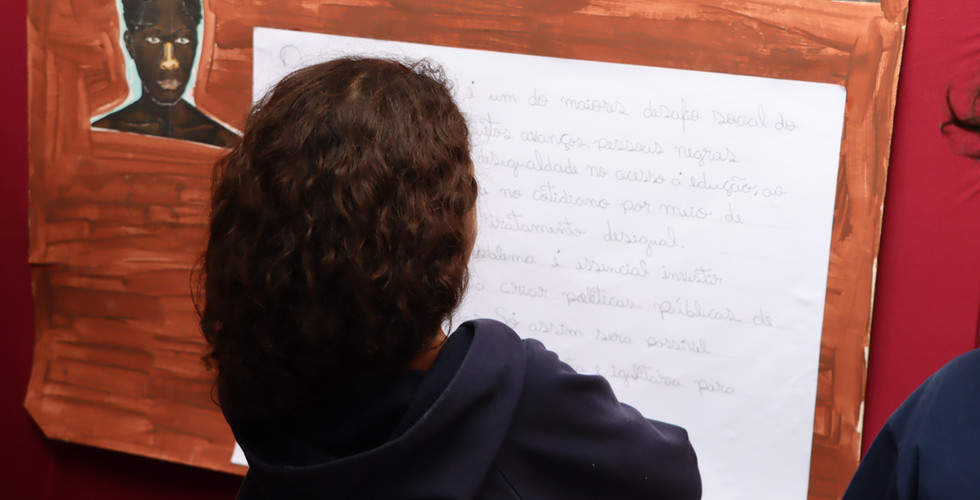 é um do maiores desafio social do
avanços, pessoas negras
desigualdade no acesso á edução, ao
no cotidiano por meio de
tratamento desigual.
é essencial investir
criar políticas públicas de
Só assim sera possível
e para